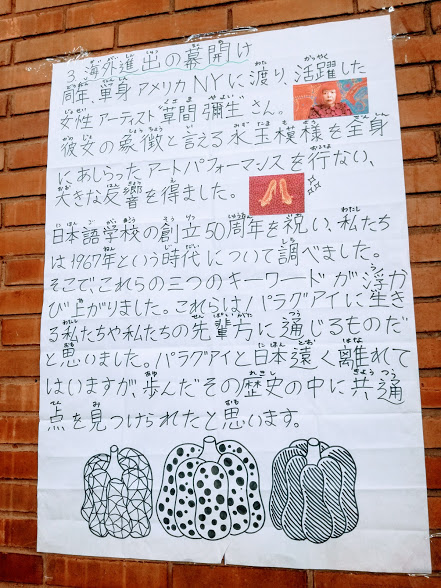 3.海外進出の幕開け
同年、単身アメリカNYに渡り、活躍した
女性アーティスト草間彌生さん。
彼女の象徴と言える水玉模様を全身
にあしらったアートパフォーマンスを行ない、
大きな反響を得ました。
日本語学校の創立50周年を祝い、私たち
は1967年という時代について調べました。
そこでこれらの三つのキーワードが浮か
び上がりました。これらはパラグアイに生き
る私たちや私たちの先輩方に通じるものだ
と思いました。パラグアイと日本遠く離れて
はいますが、歩んだその歴史の中に共通
点を見つけられたと思います。